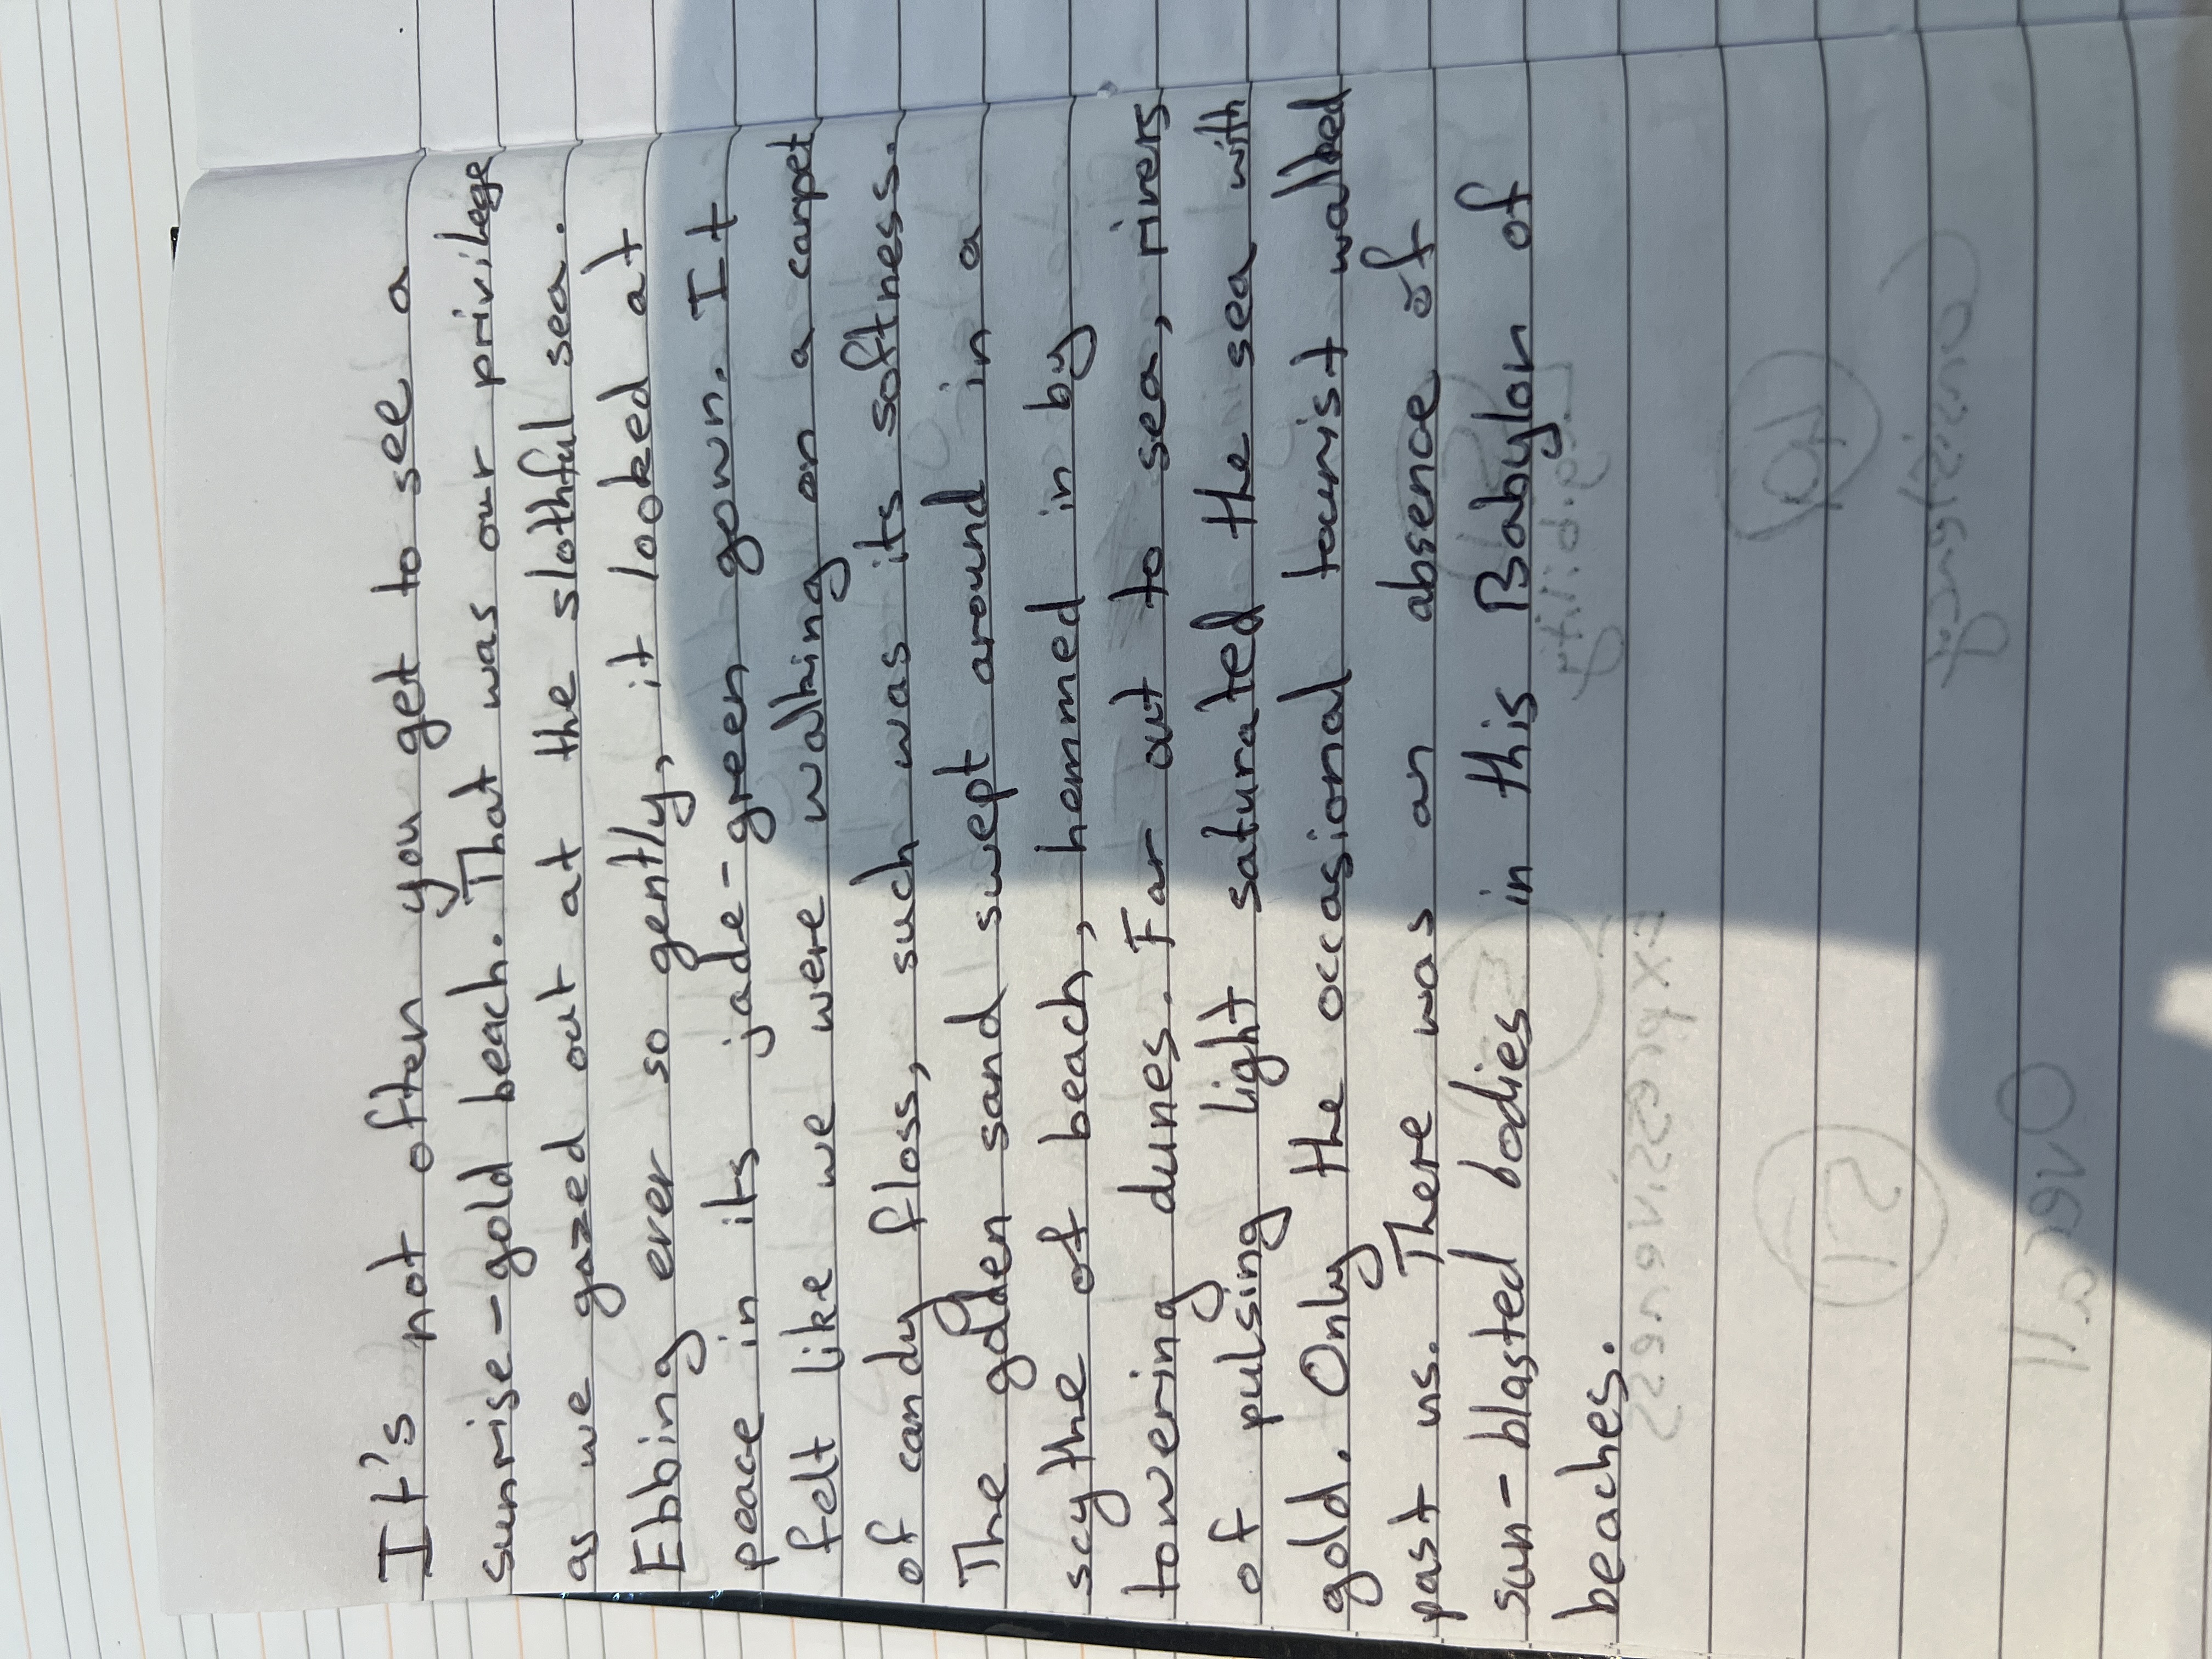 It's not often you get to see a
sunrise-gold beach. That was our privilege
as we gazed out at the slothful sea.
Ebbing ever so gently, it looked at
peace in its jade-green gown. It
felt like we were walking on a carpet
of candy floss, such was its softness.
The golden sand swept around in a
scythe of beach, hemmed in by
towering dunes. Far out to sea, rivers
of pulsing light saturated the sea with
gold. Only the occasional tourist walked
past us. There was an absence of
sun-blasted bodies in this Babylon of
beaches.
Legibility
Expressiveness
10
Consistency
Overall